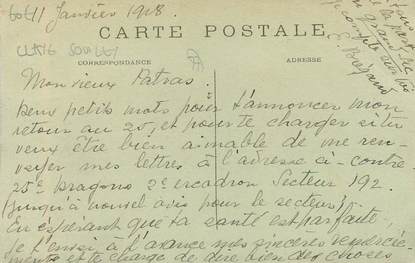 11 Janvier 1918.
CARTE POSTALE
CORRESPONDANCE
ADRESSE
Monsieur Patras.
Deux petits mots pour t'annoncer mon
retour au 25, et pour te charger si tu
veux être bien aimable de me ren-
voyer mes lettres à l'adresse ci-contre
25e Dragons 2e escadron Secteur 192.
Jusqu'à nouvel avis pour le secteur.
En espérant que ta santé est parfaite,
je t'envoi à l'avance mes sincères remercie-
ments et te charge de dire bien des choses